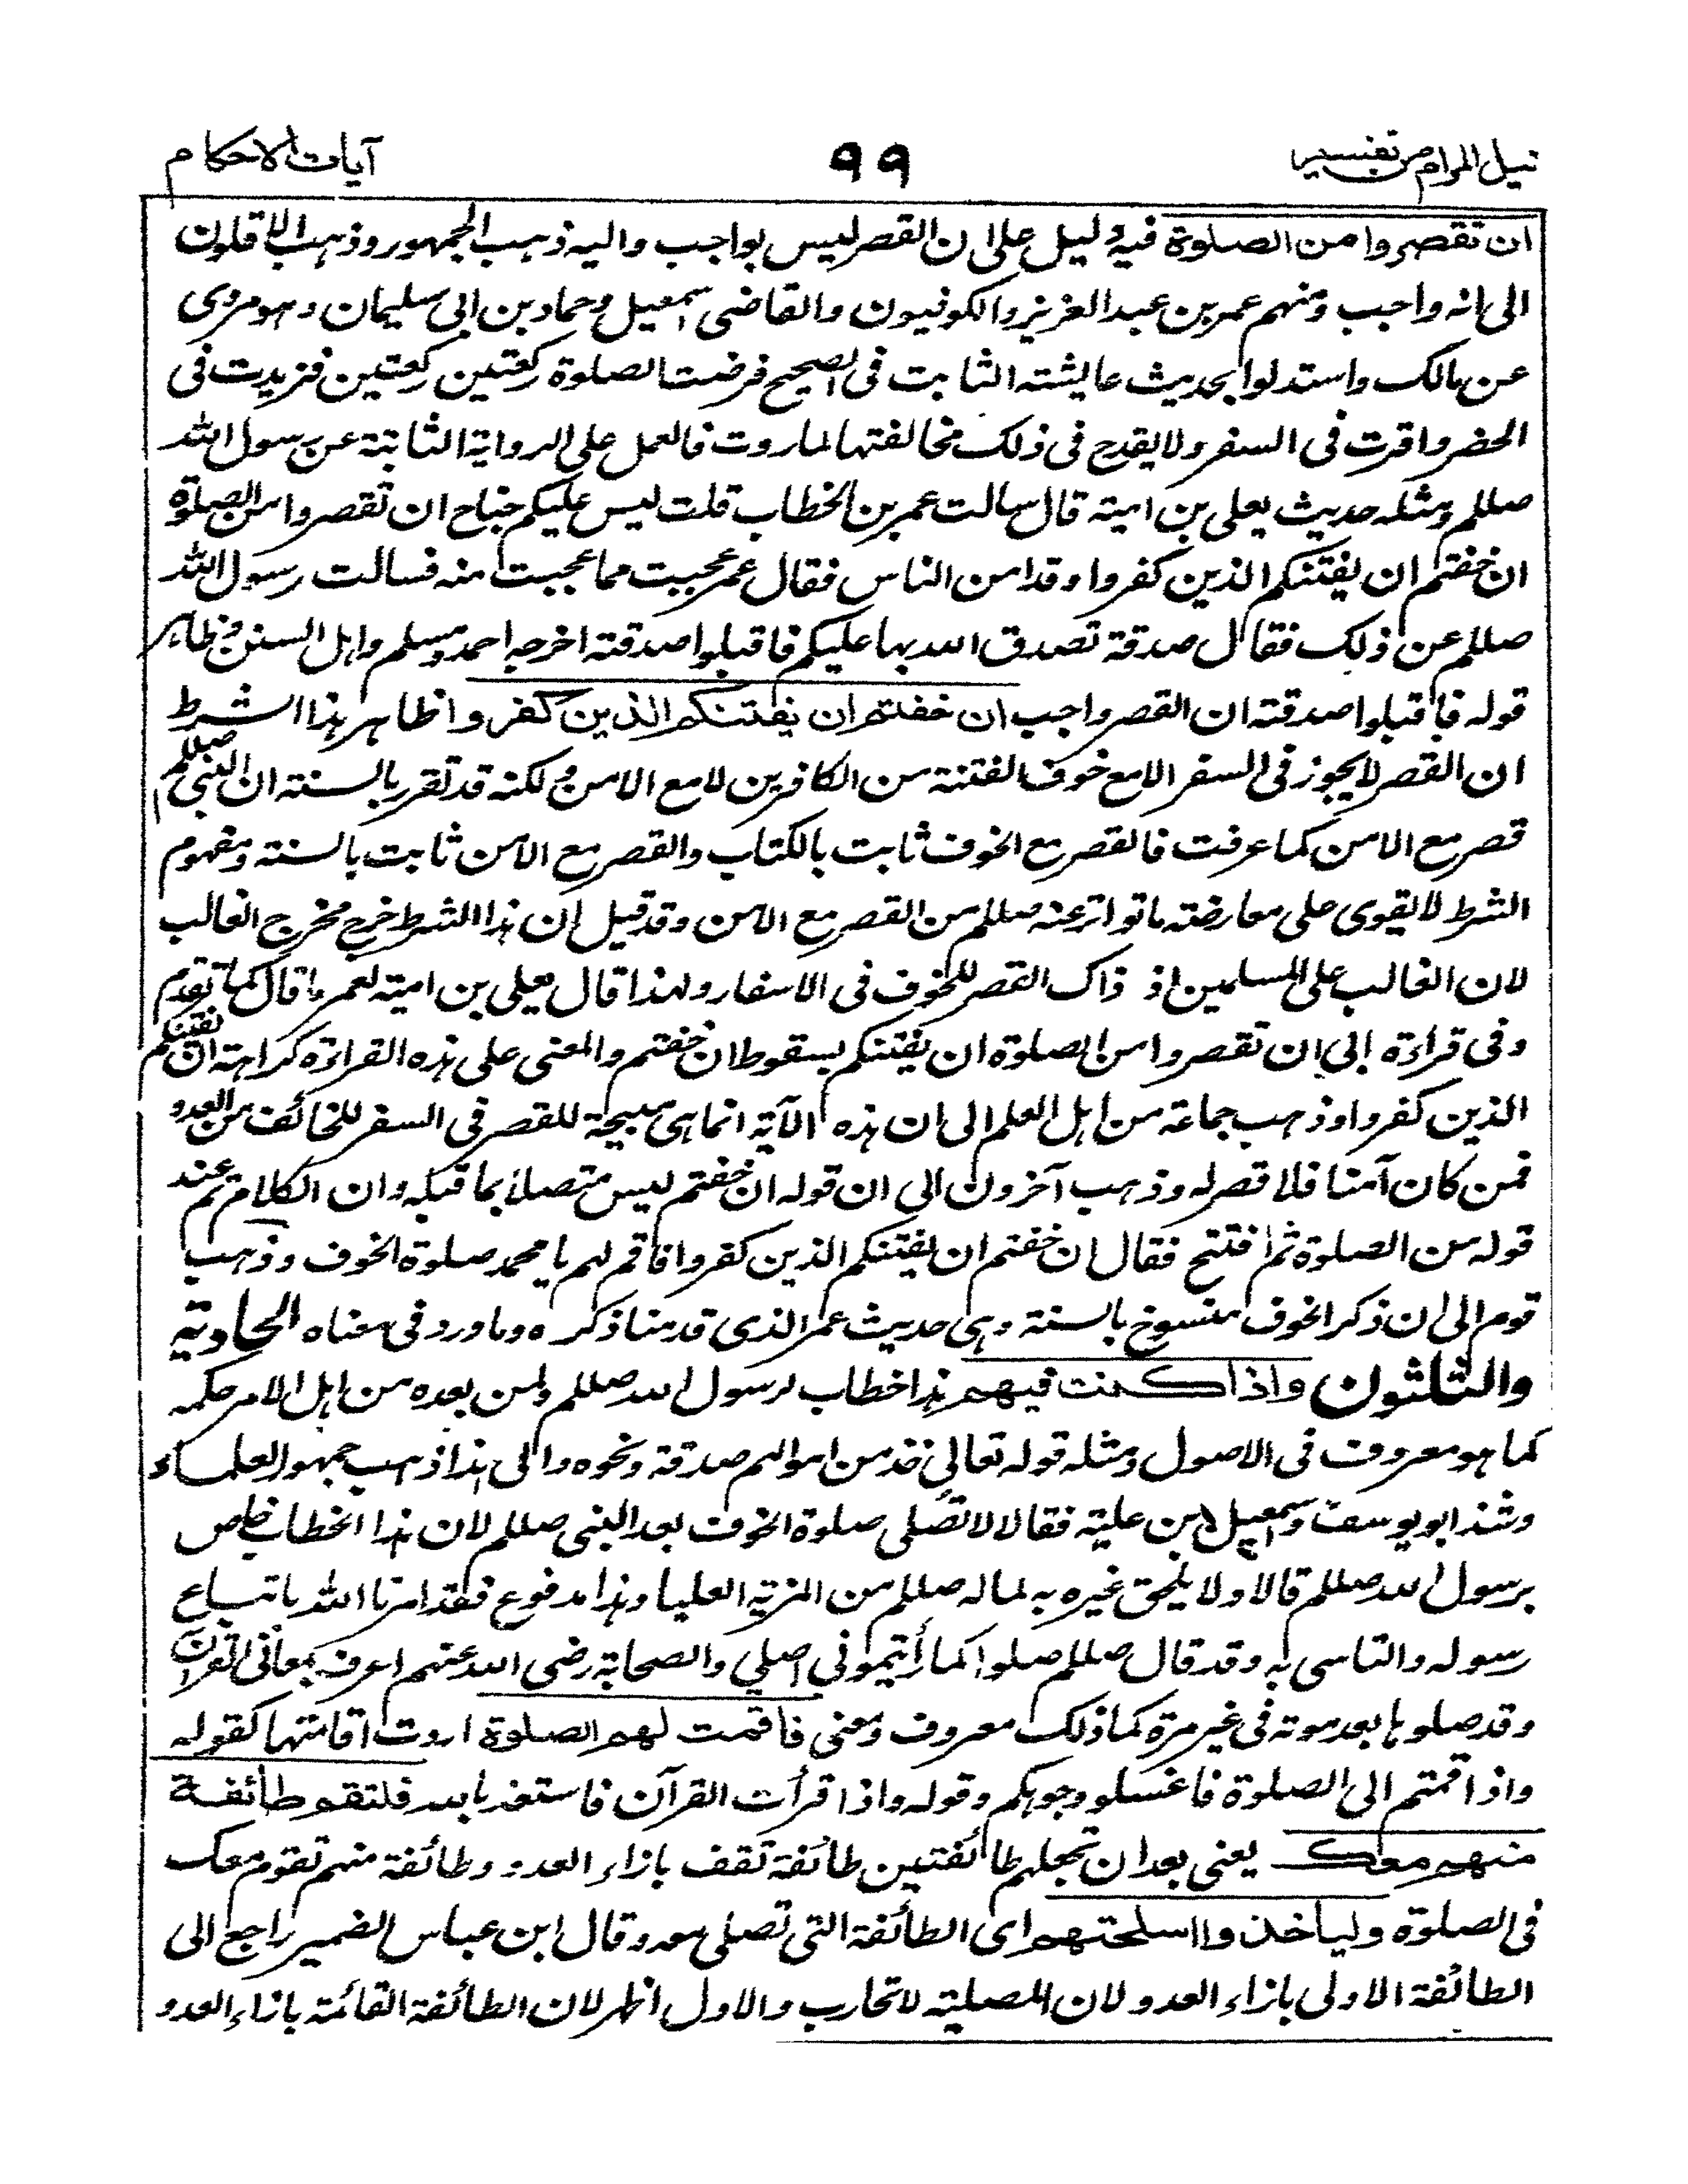 نيل المرام من تفسير
٩٩
آيات الاحكام
ان تقصروا من الصلوة فيه دليل على ان القصر ليس بواجب واليه ذهب الجمهور وذهب الاقلون
الى انه واجب ومنهم عمر بن عبد العزيز والكوفيون والقاضى اسمعيل وحماد بن ابى سليمان وهو مروى
عن مالك واستدلوا بحديث عايشته الثابت فى الصحيح فرضت الصلوة ركعتين ركعتين فزيدت فى
الحضر واقرت فى السفر ولا يقدح فى ذلك مخالفتها لما روت فالعمل على الرواية الثابتة عن رسول الله
صللم ومثله حديث يعلى بن امية قال سالت عمر بن الخطاب قلت ليس عليكم جناح ان تقصروا من الصلوة
ان خفتم ان يفتنكم الذين كفروا وقد امن الناس فقال عمر عجبت مما عجبت منه فسالت رسول الله
صللم عن ذلك فقال صدقة تصدق الله بها عليكم فاقبلوا صدقته اخرجه احمد ومسلم واهل السنن وظاهر
قوله فاقبلوا صدقته ان القصر واجب ان خفتم ان يفتنكم الذين كفروا ظاهر هذا الشرط
ان القصر لا يجوز فى السفر الا مع خوف الفتنة من الكافرين لا مع الامن ولكنه قد تقرر بالسنته ان النبى صللم
قصر مع الامن كما عرفت فالقصر مع الخوف ثابت بالكتاب والقصر مع الامن ثابت بالسنته ومفهوم
الشرط لا يقوى على معارضته ما تواتر عنه صللم من القصر مع الامن وقد قيل ان هذا الشرط خرج مخرج الغالب
لان الغالب على المسلمين اذ ذاك القصر للخوف فى الاسفار ولهذا قال يعلى بن امية لعمر ما قال كما تقدم
وفى قراءة ابى ان تقصروا من الصلوة ان يفتنكم بسقوط ان خفتم والمعنى على هذه القراءة كراهته ان يفتنكم
الذين كفروا وذهب جماعة من اهل العلم الى ان هذه الآية انما هى مبيحة للقصر فى السفر للخائف من العدو
فمن كان آمنا فلا قصر له وذهب آخرون الى ان قوله ان خفتم ليس متصلا بما قبله وان الكلام تم عند
قوله من الصلوة ثم افتتح فقال ان خفتم ان يفتنكم الذين كفروا فاقم لهم يا محمد صلوة الخوف وذهب
قوم الى ان ذكر الخوف منسوخ بالسنته وهى حديث عمر الذى قدمنا ذكره وما ورد فى معناه الحادية
والثلثون واذا كنت فيهم هذا خطاب لرسول الله صللم ولمن بعده من اهل الامر حكمه
كما هو معروف فى الاصول ومثله قوله تعالى خذ من اموالهم صدقة ونحوه والى هذا ذهب جمهور العلماء
وشذ ابو يوسف واسمعيل ابن علية فقالا لا تصلى صلوة الخوف بعد النبى صللم لان هذا الخطاب خاص
برسول الله صللم قالا ولا يلحق غيره به لما له صللم من المزية العليا وهذا مدفوع فقد امرنا الله باتباع
رسوله والتاسى به وقد قال صللم صلوا كما رأيتمونى اصلي والصحابة رضى الله عنهم اعرف بمعانى القرآن
وقد صلوها بعد موته فى غير مرة كما ذلك معروف ومعنى فاقمت لهم الصلوة اردت اقامتها كقوله
واذا قمتم الى الصلوة فاغسلو وجوهكم وقوله واذا قرأت القرآن فاستعذ بالله فلتقم طائفة
منهم معك يعنى بعد ان تجعلهم طائفتين طائفة تقف بازاء العدو وطائفة منهم تقوم معك
فى الصلوة ولياخذوا اسلحتهم اى الطائفة التى تصلى معه وقال ابن عباس الضمير راجع الى
الطائفة الاولى بازاء العدو لان المصلية لا تحارب والاول اظهر لان الطائفة القائمة بازاء العدو